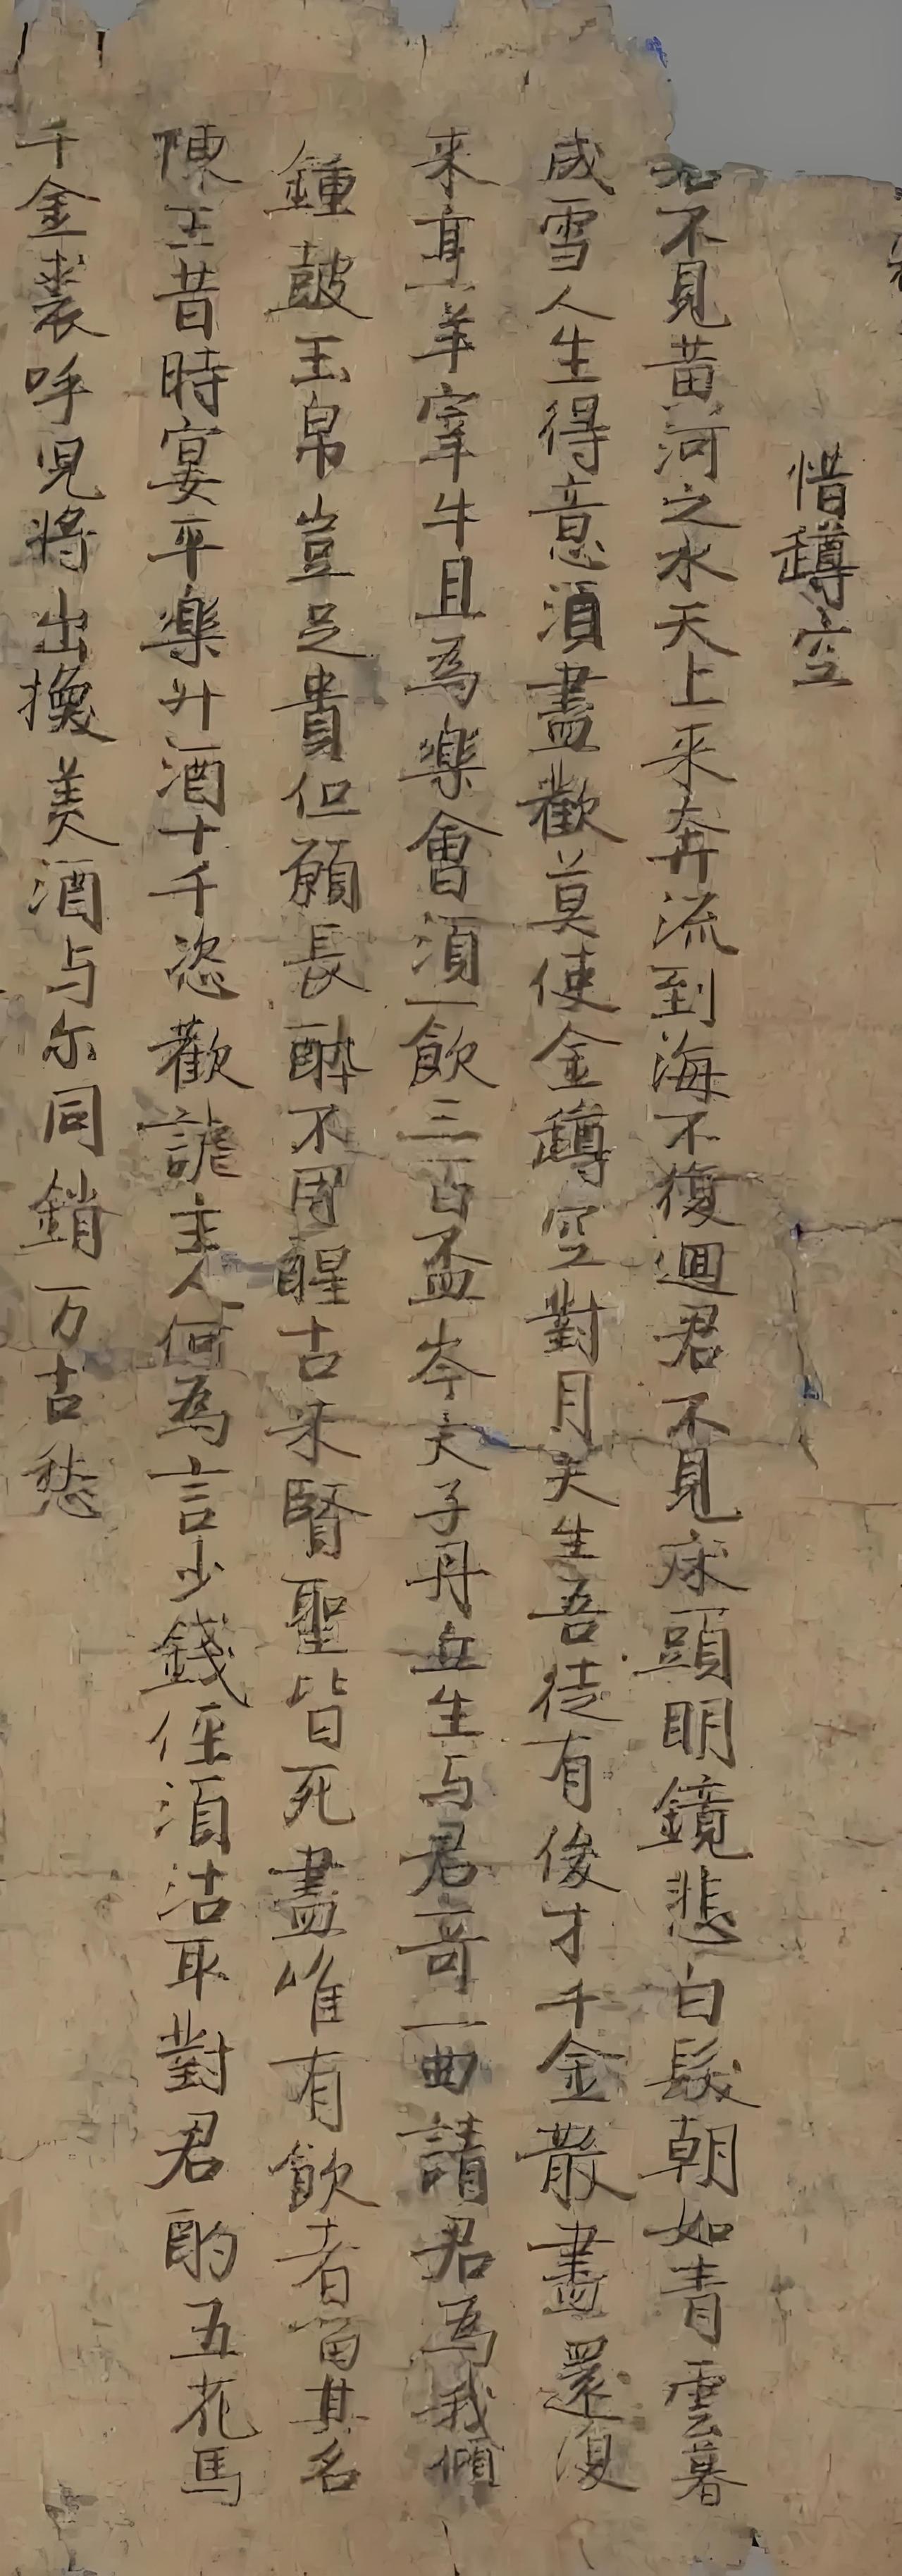 惜罇空
君不見黃河之水天上来奔流到海不復迴君不見床頭明鏡悲白髮朝如青雲暮
成雪人生得意須盡歡莫使金罇空對月天生吾徒有俊才千金散盡還復
来烹羊宰牛且為樂會須一飲三百盃岑夫子丹丘生与君哥一曲請君為我傾
鍾皷玉帛豈足貴但願長醉不用醒古来賢聖皆死盡唯有飲者留其名
陳王昔時宴平樂斗酒十千恣歡謔主人何為言少錢徑須沽取對君酌五花馬
千金裘呼兒將出換美酒与尔同銷万古愁